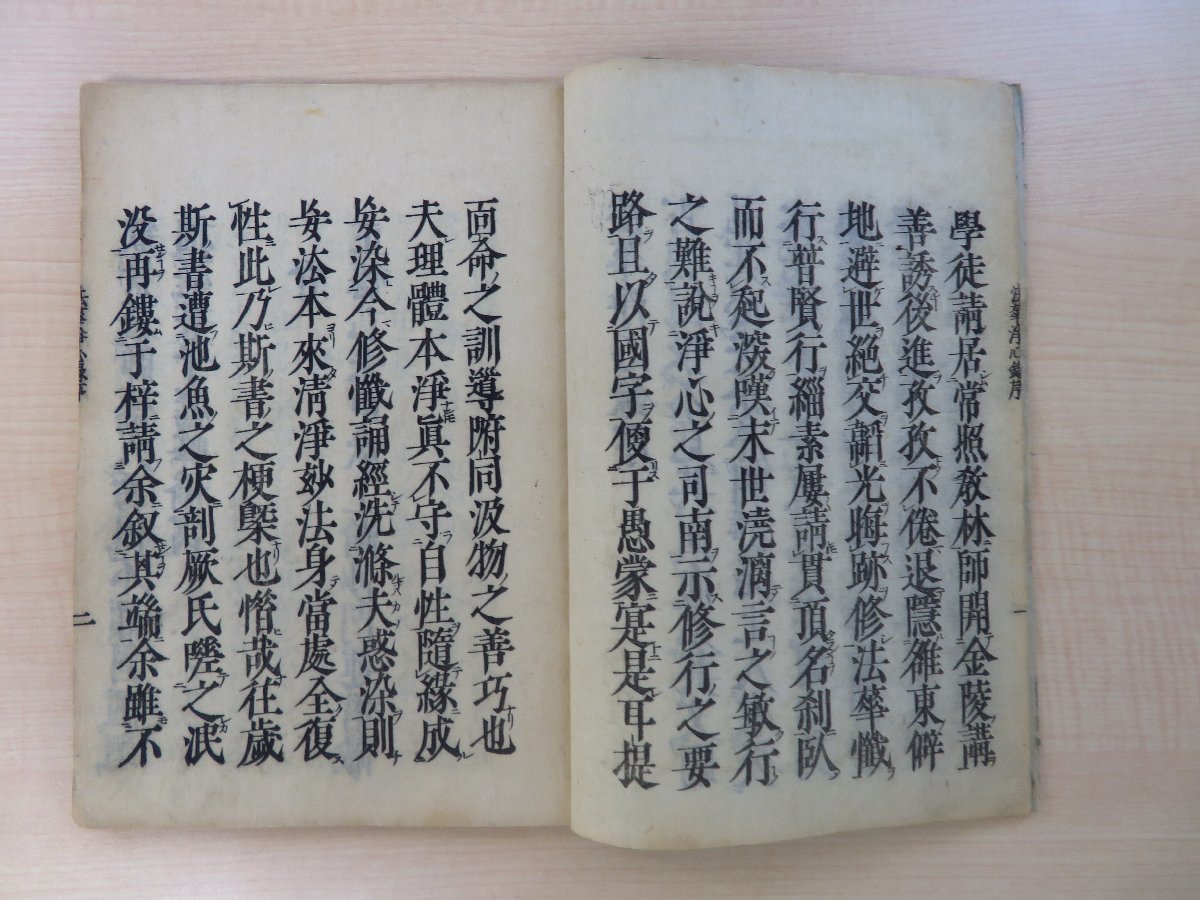 學徒請居常照教林師開金陵講
善誘後進孜孜不倦退隱雒東僻
地避世絶交韜光晦跡修法華懺
行普賢行緇素屢請貫頂名刹臥
而不起深嘆末世澆漓言之敏行
之難說淨心之司南示修行之要
路且以國字便于愚蒙寔是耳提
面命之訓導附同汲物之善巧也
夫理體本淨眞不守自性隨緣成
妄染今修懺誦經洗滌夫惑染則
妄法本來淸淨妙法身當處全復
性此乃斯書之梗槩也惜哉往歲
斯書遭池魚之灾剞厥氏嘆之泯
没再鏤于梓請余叙其端余雖不
法華淨心錄序
一
二